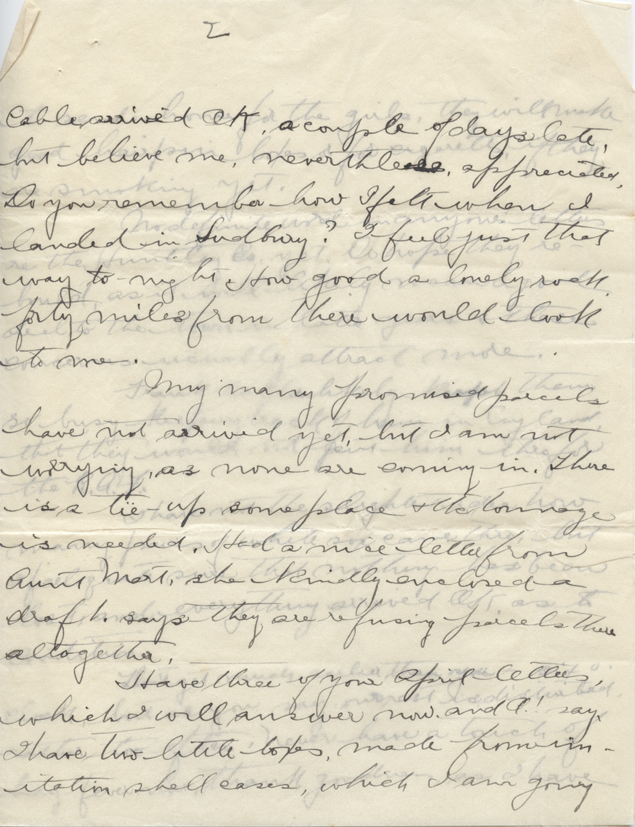 2
Cable arrived OK, a couple of days late,
but believe me, nevertheless, appreciated,
Do you remember how I felt when I
landed in Sudbury? I feel just that
way to-night How good a lonely rock
forty miles from there would look
to me.
My many promised parcels
have not arrived yet, but I am not
worrying, as none are coming in. There
is a tie-up someplace & the tonnage
is needed. Had a nice letter from
Aunt Mart, she kindly enclosed a
draft. says they are refusing parcels there
altogether.
Have three of your April letters,
which I will answer now. and I'll say,
I have two little boxes, made from im-
itation shell cases, which I am going